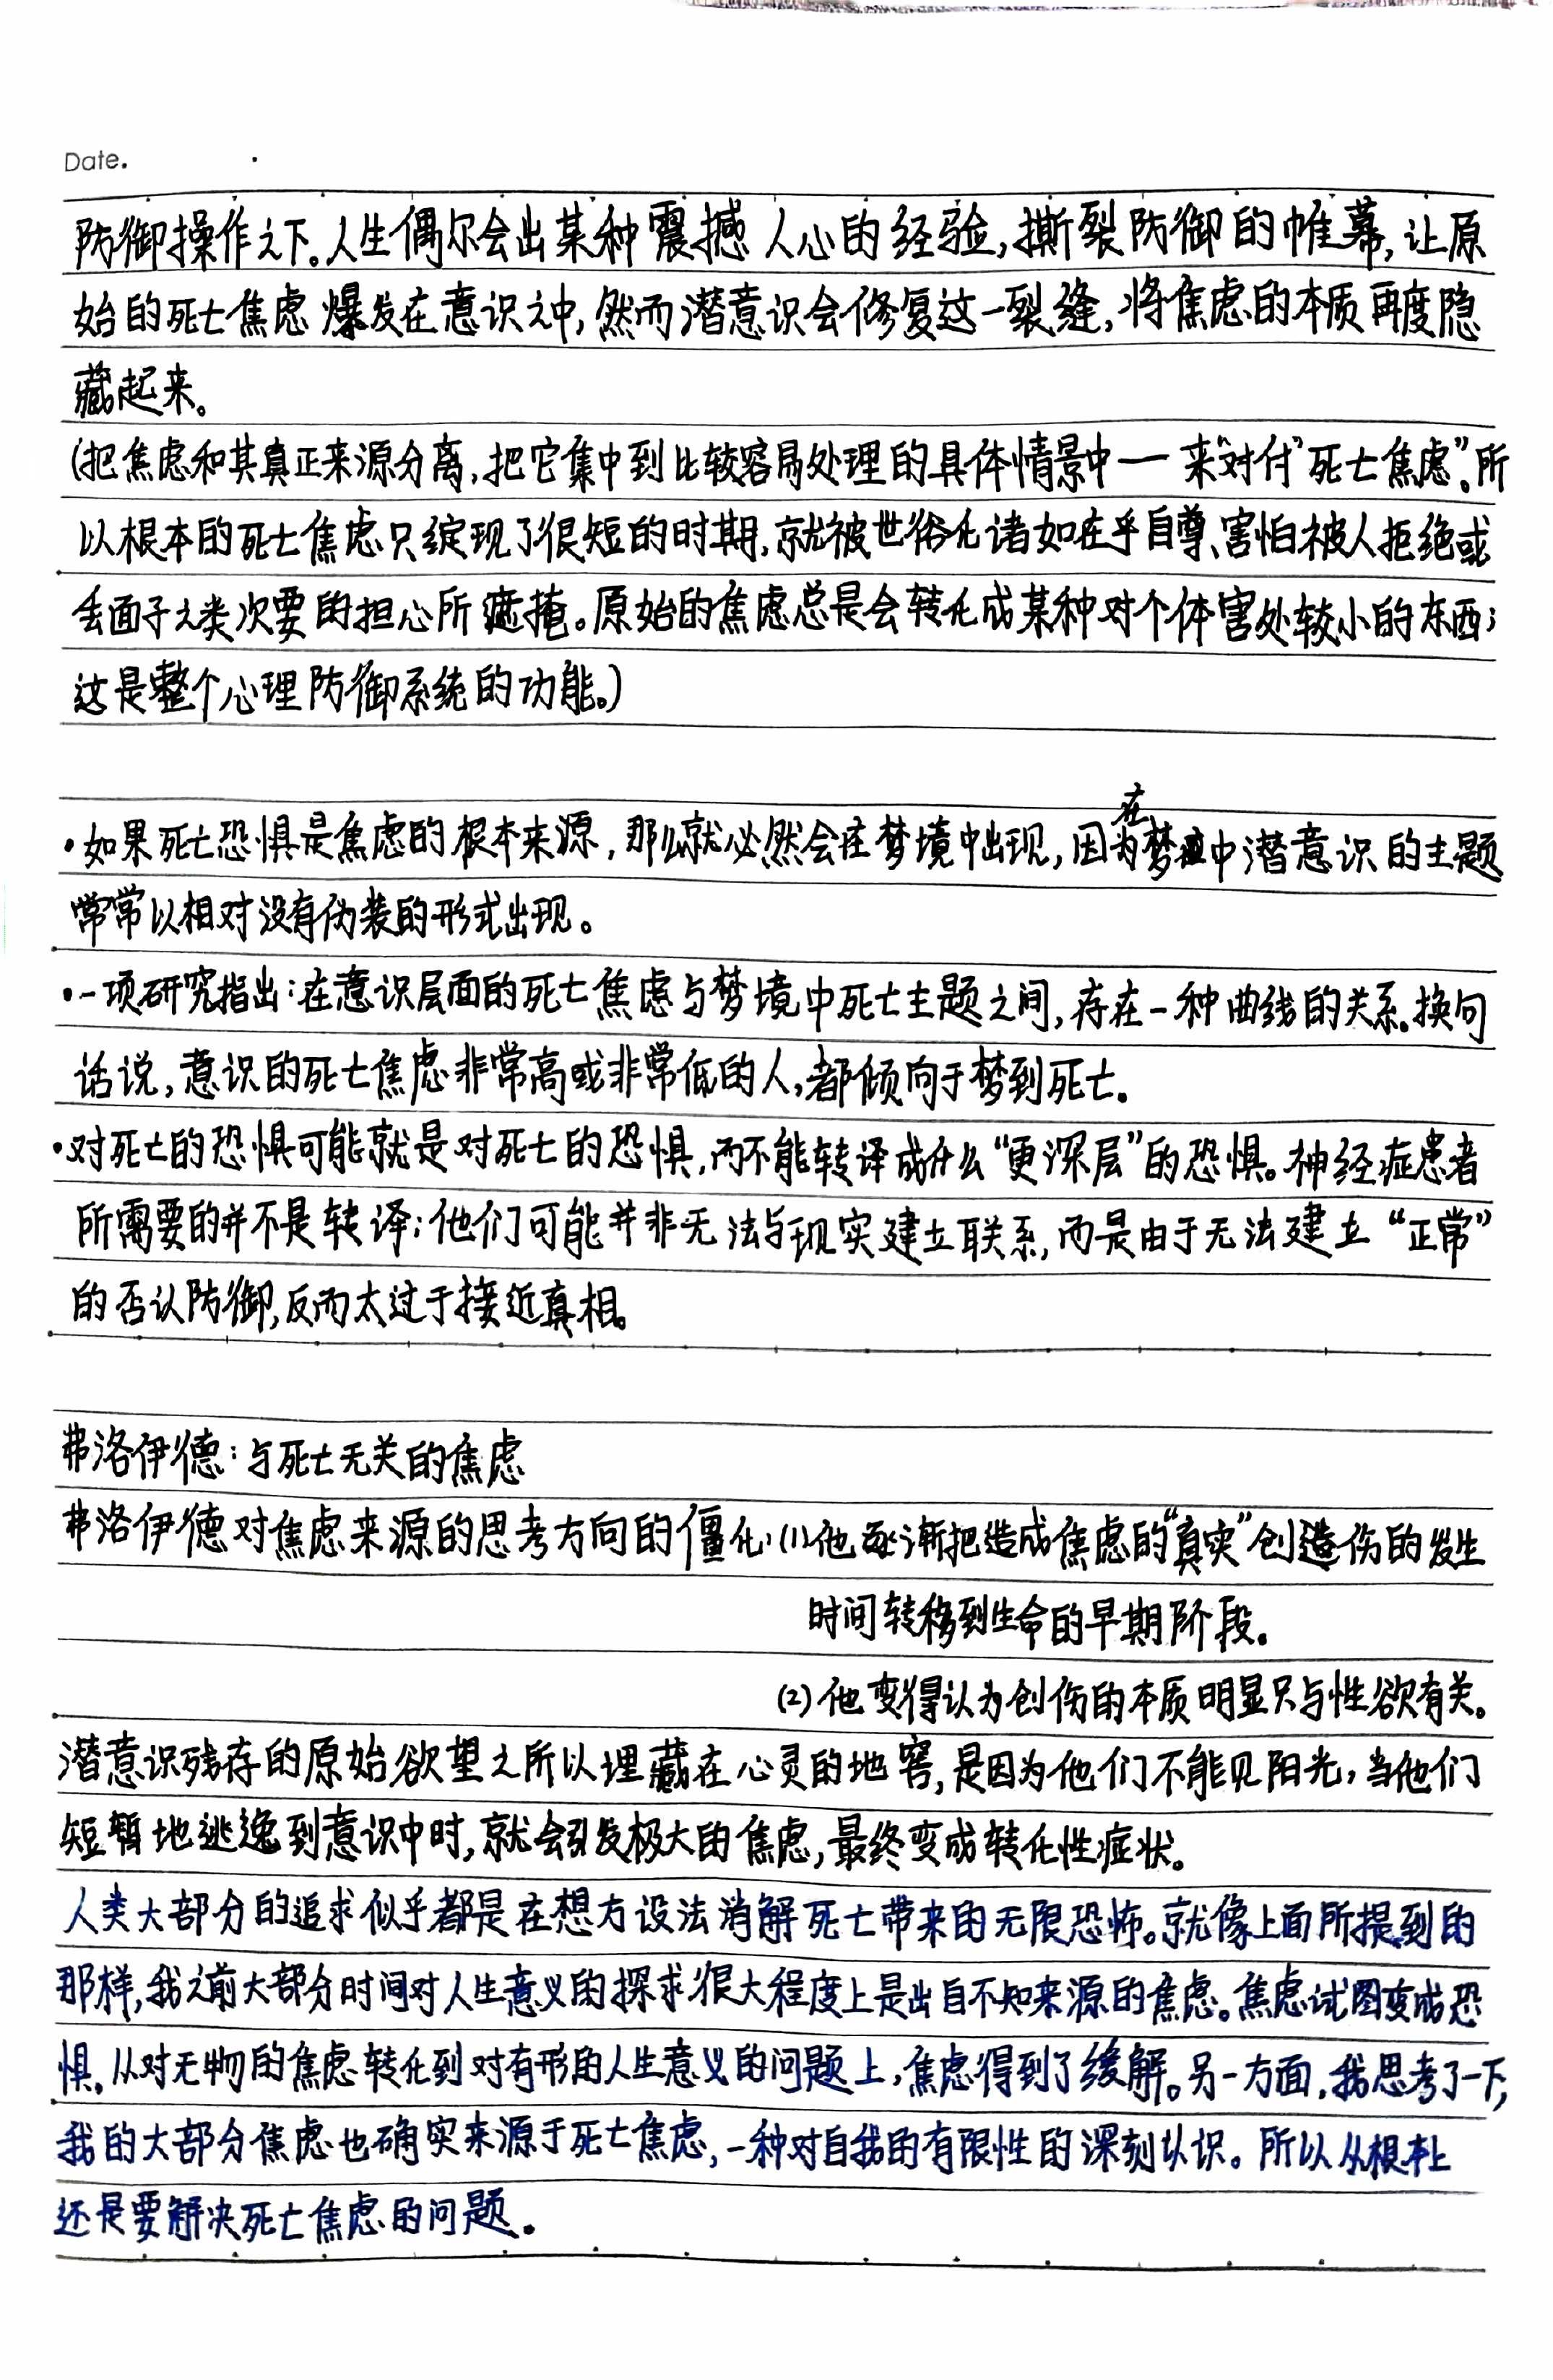 Date.
防御操作之下。人生偶尔会出某种震撼人心的经验,撕裂防御的帷幕,让原
始的死亡焦虑爆发在意识之中,然而潜意识会修复这一裂缝,将焦虑的本质再度隐
藏起来。
(把焦虑和其真正来源分离,把它集中到比较容易处理的具体情景中一来“对付”死亡焦虑”。所
以根本的死亡焦虑只绽现了很短的时期,就被世俗化诸如在乎自尊、害怕被人拒绝或
丢面子之类次要的担心所遮掩。原始的焦虑总是会转化成某种对个体害处较小的东西;
这是整个心理防御系统的功能。)
·如果死亡恐惧是焦虑的根本来源,那么就必然会在梦境中出现,因为在梦中潜意识的主题
常常以相对没有伪装的形式出现。
·一项研究指出:在意识层面的死亡焦虑与梦境中死亡主题之间,存在一种曲线的关系。换句
话说,意识的死亡焦虑非常高或非常低的人,都倾向于梦到死亡.
·对死亡的恐惧可能就是对死亡的恐惧,而不能转译成什么“更深层”的恐惧。神经症患者
所需要的并不是转译;他们可能并非无法与现实建立联系,而是由于无法建立“正常”
的否认防御,反而太过于接近真相。
弗洛伊德:与死亡无关的焦虑
弗洛伊德对焦虑来源的思考方向的僵化:(1)他逐渐把造成焦虑的“真实”创造伤的发生
时间转移到生命的早期阶段.
(2)他变得认为创伤的本质明显只与性欲有关。
潜意识残存的原始欲望之所以埋藏在心灵的地窖,是因为他们不能见阳光,当他们
短暂地逃逸到意识中时,就会引发极大的焦虑,最终变成转化性症状。
人类大部分的追求似乎都是在想方设法消解死亡带来的无限恐怖。就像上面所提到的
那样,我之前大部分时间对人生意义的探求很大程度上是出自不知来源的焦虑。焦虑试图变成恐
惧。从对无物的焦虑转化到对有形的人生意义的问题上,焦虑得到了缓解。另一方面,我思考了一下,
我的大部分焦虑也确实来源于死亡焦虑,一种对自我的有限性的深刻认识。所以从根本上
还是要解决死亡焦虑的问题.